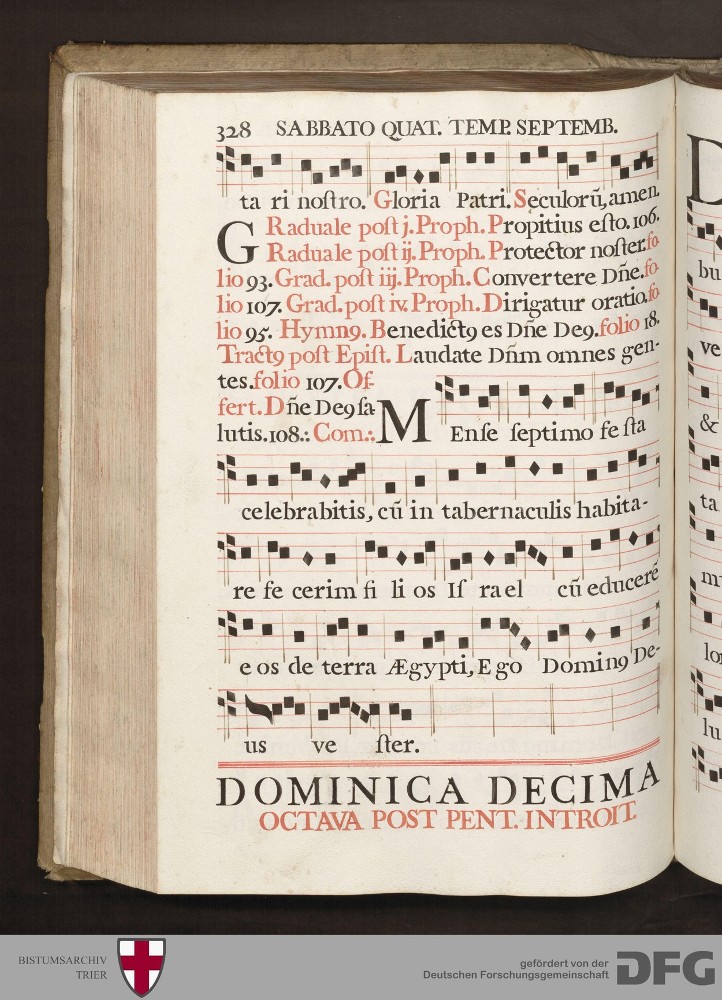 328 SABBATO QUAT. TEMP. SEPTEMB.
ta ri noſtro. Gloria Patri. Seculorũ, amen.
GRaduale poſt j. Proph. Propitius eſto. 106.
Raduale poſt ij. Proph. Protector noſter. fo-
lio 93. Grad. poſt iij. Proph. Convertere Dñe. fo-
lio 107. Grad. poſt iv. Proph. Dirigatur oratio. fo-
lio 95. Hymnꝯ. Benedictꝯ es Dñe Deꝯ. folio 18.
Tractꝯ poſt Epiſt. Laudate Dñm omnes gen-
tes. folio 107. Of-
fert. Dñe Deꝯ ſa-
lutis. 108.: Com.:
MEnſe ſeptimo fe ſta
celebrabitis, cũ in tabernaculis habita-
re fe cerim fi li os Iſ rael cũ educerẽ
e os de terra Ægypti, Ego Dominꝯ De-
us ve ſter.
DOMINICA DECIMA
OCTAVA POST PENT. INTROIT.
D
bu
ve
&
ta
m
lo
lu
BISTUMSARCHIV
TRIER
gefördert von der
Deutschen Forschungsgemeinschaft
DFG